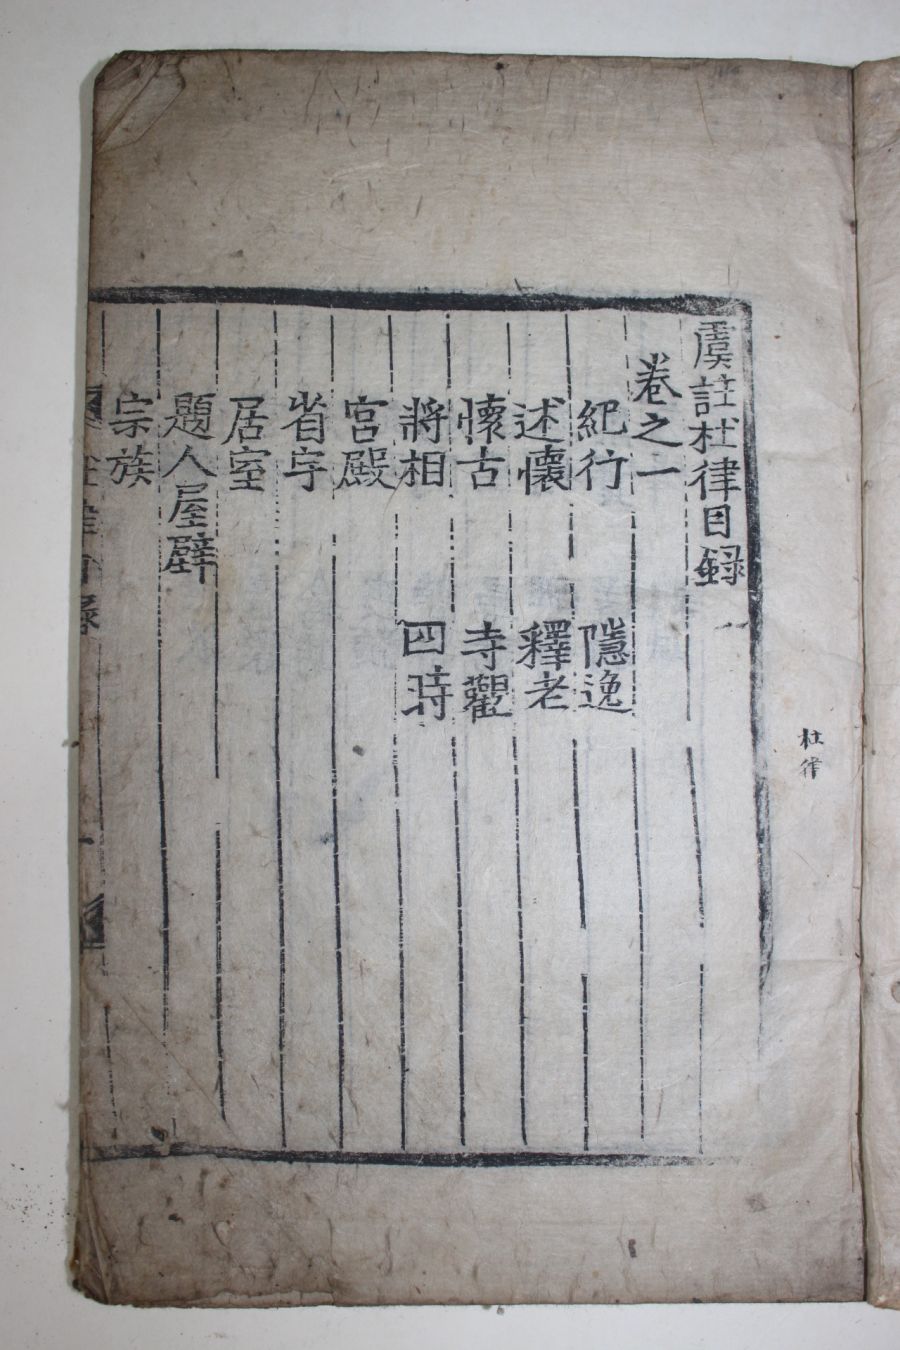 虞註杜律目録
卷之一
紀行 隱逸
述懷 釋老
懷古 寺觀
將相 四時
宮殿
省宇
居室
題人屋壁
宗族
杜律